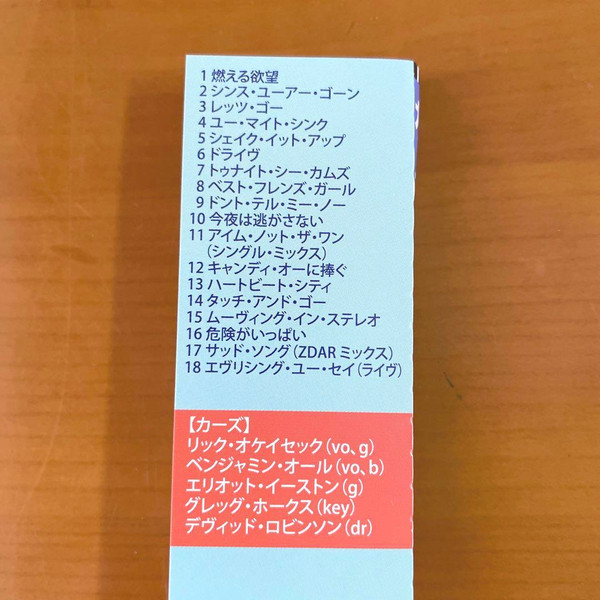 1 燃える欲望
2 シンス・ユーアー・ゴーン
3 レッツ・ゴー
4 ユー・マイト・シンク
5 シェイク・イット・アップ
6 ドライヴ
7 トゥナイト・シー・カムズ
8 ベスト・フレンズ・ガール
9 ドント・テル・ミー・ノー
10 今夜は逃がさない
11 アイム・ノット・ザ・ワン
(シングル・ミックス)
12 キャンディ・オーに捧ぐ
13 ハートビート・シティ
14 タッチ・アンド・ゴー
15 ムーヴィング・イン・ステレオ
16 危険がいっぱい
17 サッド・ソング(ZDARミックス)
18 エヴリシング・ユー・セイ(ライヴ)
【カーズ】
リック・オケイセック(vo、g)
ベンジャミン・オール(vo、b)
エリオット・イーストン(g)
グレッグ・ホークス(key)
デヴィッド・ロビンソン(dr)